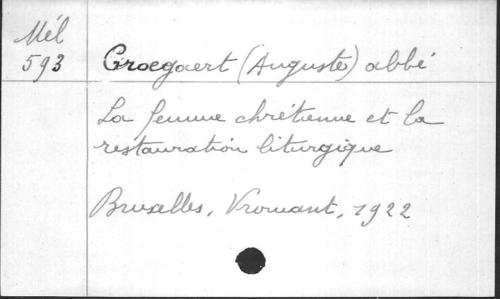 Mél
593
Croegaert (Auguste) abbé
La femme chrétienne et la
restauration liturgique
Bruxelles, Vromant, 1922